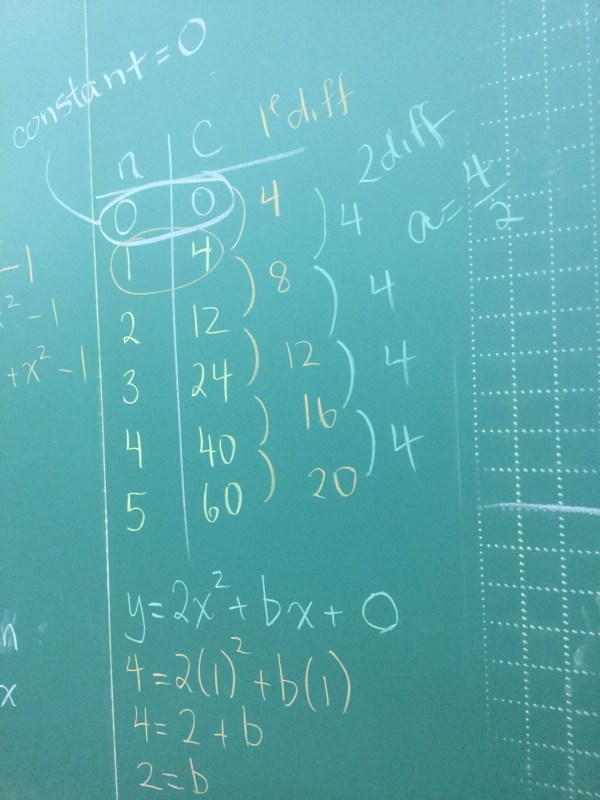 constant = 0
n C 1e diff 2 diff
0 0 4 4 a = 4/2
1 4 8 4
2 12 12 4
3 24 16 4
4 40 20
5 60
-1
² -1
+x² -1
y = 2x² + bx + 0
4 = 2(1)² + b(1)
4 = 2 + b
2 = b
n
x